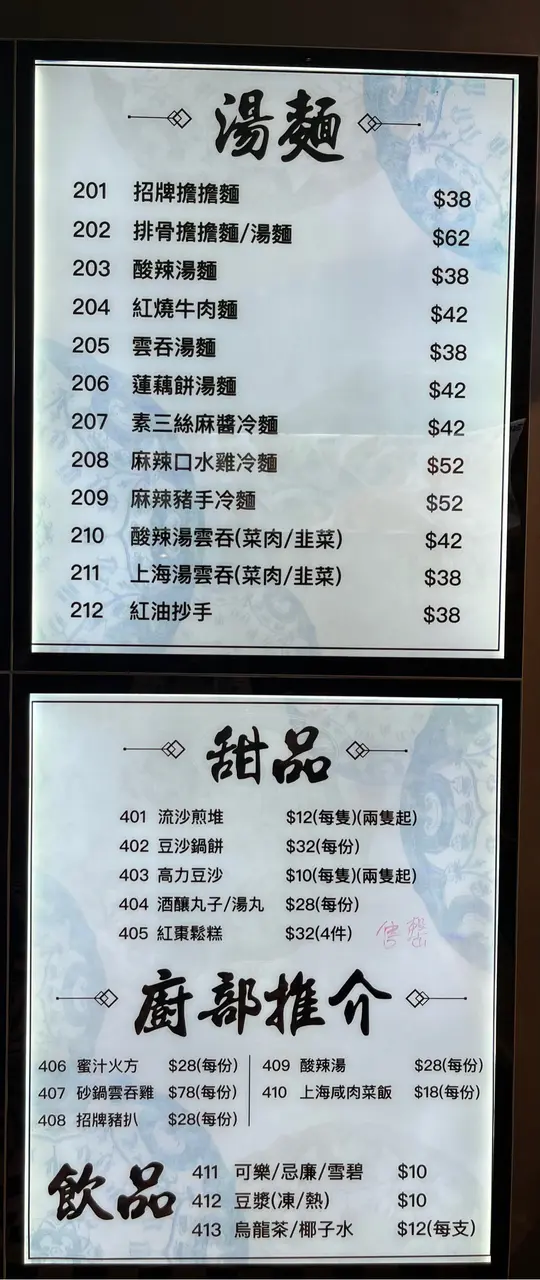 湯麵
201 招牌擔擔麵 $38
202 排骨擔擔麵/湯麵 $62
203 酸辣湯麵 $38
204 紅燒牛肉麵 $42
205 雲吞湯麵 $38
206 蓮藕餅湯麵 $42
207 素三絲麻醬冷麵 $42
208 麻辣口水雞冷麵 $52
209 麻辣豬手冷麵 $52
210 酸辣湯雲吞(菜肉/韭菜) $42
211 上海湯雲吞(菜肉/韭菜) $38
212 紅油抄手 $38
甜品
401 流沙煎堆 $12(每隻)(兩隻起)
402 豆沙鍋餅 $32(每份)
403 高力豆沙 $10(每隻)(兩隻起)
404 酒釀丸子/湯丸 $28(每份)
405 紅棗鬆糕 $32(4件) 售罄
廚部推介
406 蜜汁火方 $28(每份)
407 砂鍋雲吞雞 $78(每份)
408 招牌豬扒 $28(每份)
409 酸辣湯 $28(每份)
410 上海咸肉菜飯 $18(每份)
飲品
411 可樂/忌廉/雪碧 $10
412 豆漿(凍/熱) $10
413 烏龍茶/椰子水 $12(每支)